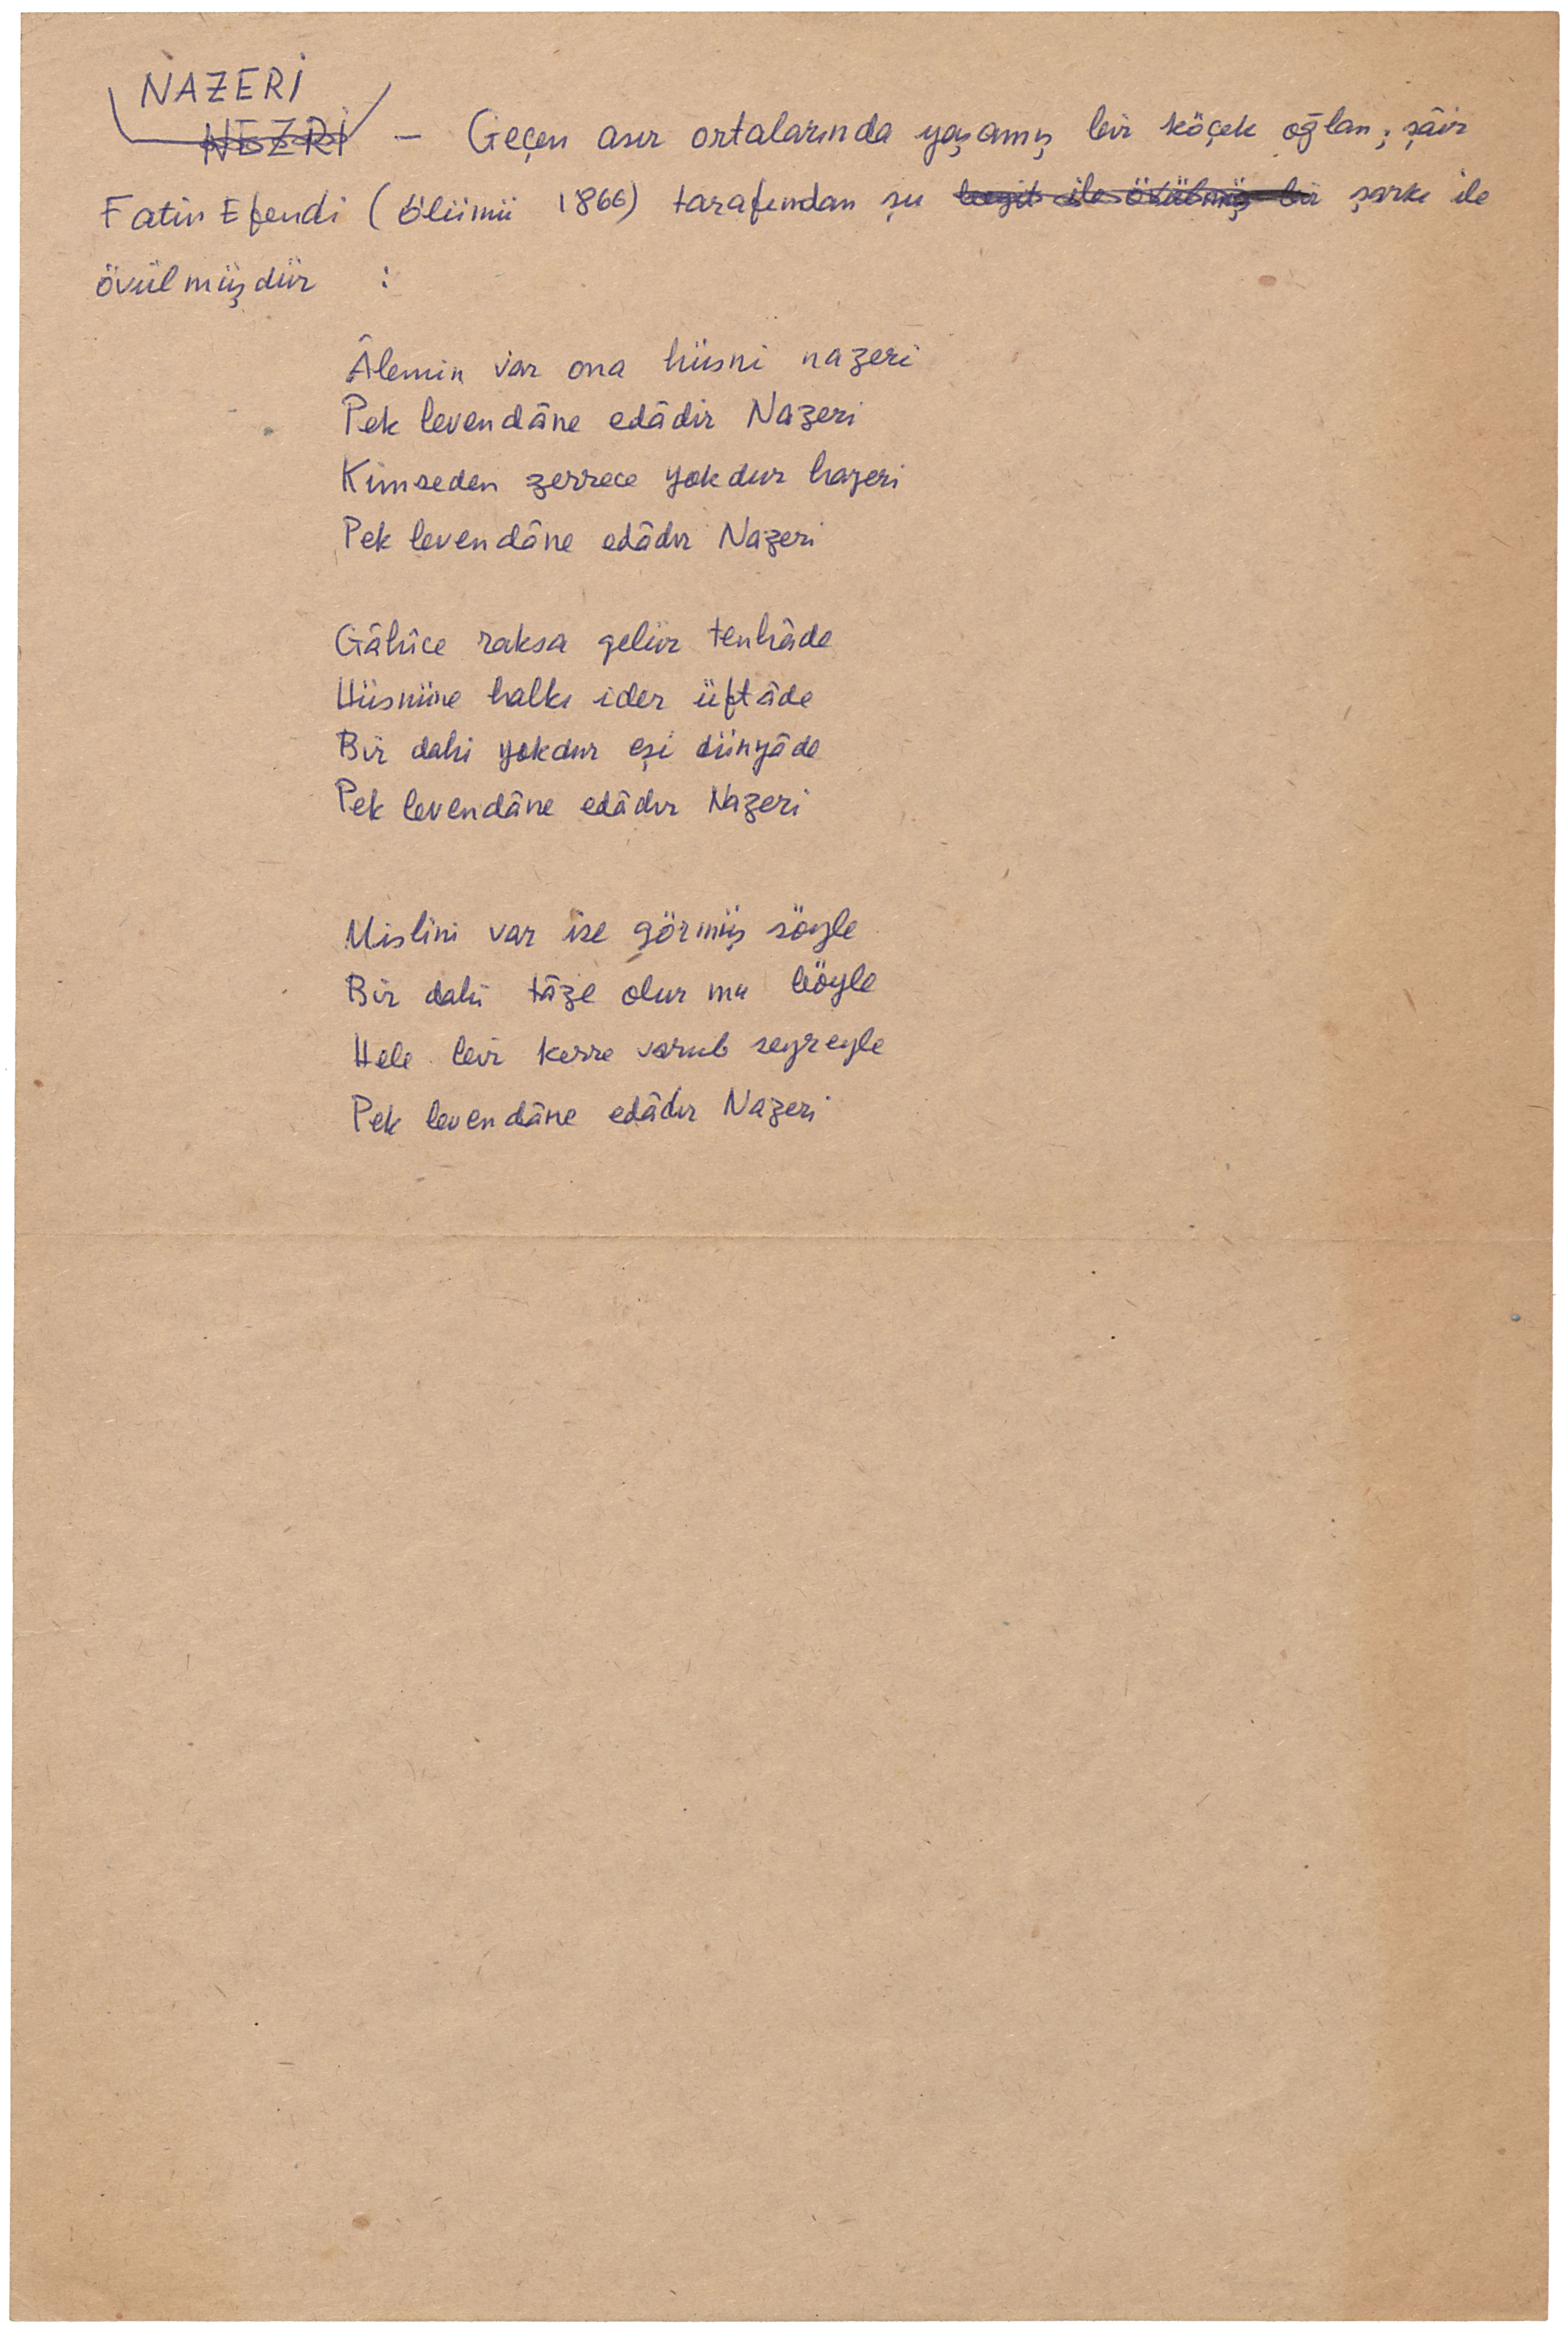 NAZERİ
NEZRİ — Geçen asır ortalarında yaşamış bir köçek oğlan; şâir
Fatin Efendi (ölümü 1866) tarafından şu beyit ile övülmüş bir şarkı ile
övülmüşdür :
Âlemin var ona hüsni nazeri
Pek levendâne edâdir Nazeri
Kimseden zerrece yokdur hazeri
Pek levendâne edâdır Nazeri
Gâhîce raksa gelür tenhâde
Hüsnüne halkı ider üftâde
Bir dahi yokdur eşi dünyâde
Pek levendâne edâdır Nazeri
Mislini var ise görmüş söyle
Bir dahi tâze olur mu böyle
Hele bir kerre varub seyreyle
Pek levendâne edâdır Nazeri